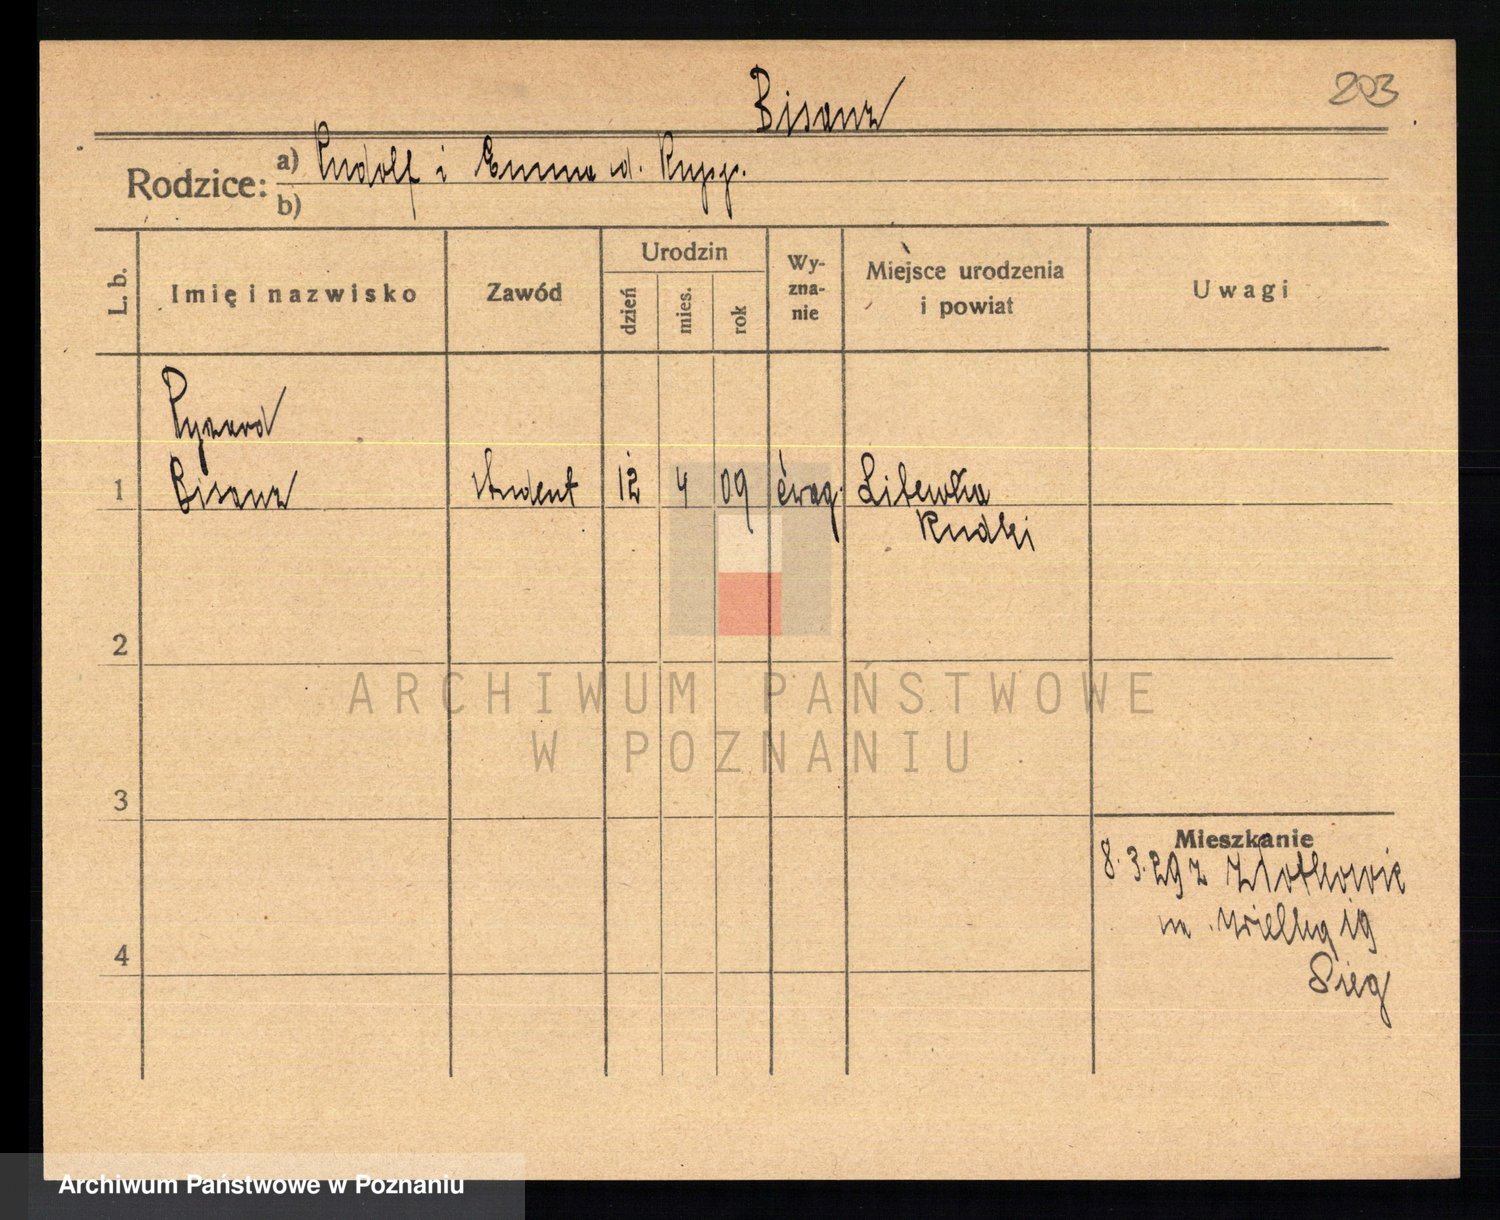 203
Bisanz
Rodzice: a) Rudolf i Emma d. Rupp.
b)
L. b. Imię i nazwisko Zawód Urodzin dzień mies. rok Wyznanie Miejsce urodzenia i powiat Uwagi
Ryszard
1 Bisanz student 12 4 09 ewag.
Rudki
2
ARCHIWUM PAŃSTWOWE
W POZNANIU
3
Mieszkanie
8.3.29 z
4 na Wielką 19
Archiwum Państwowe w Poznaniu